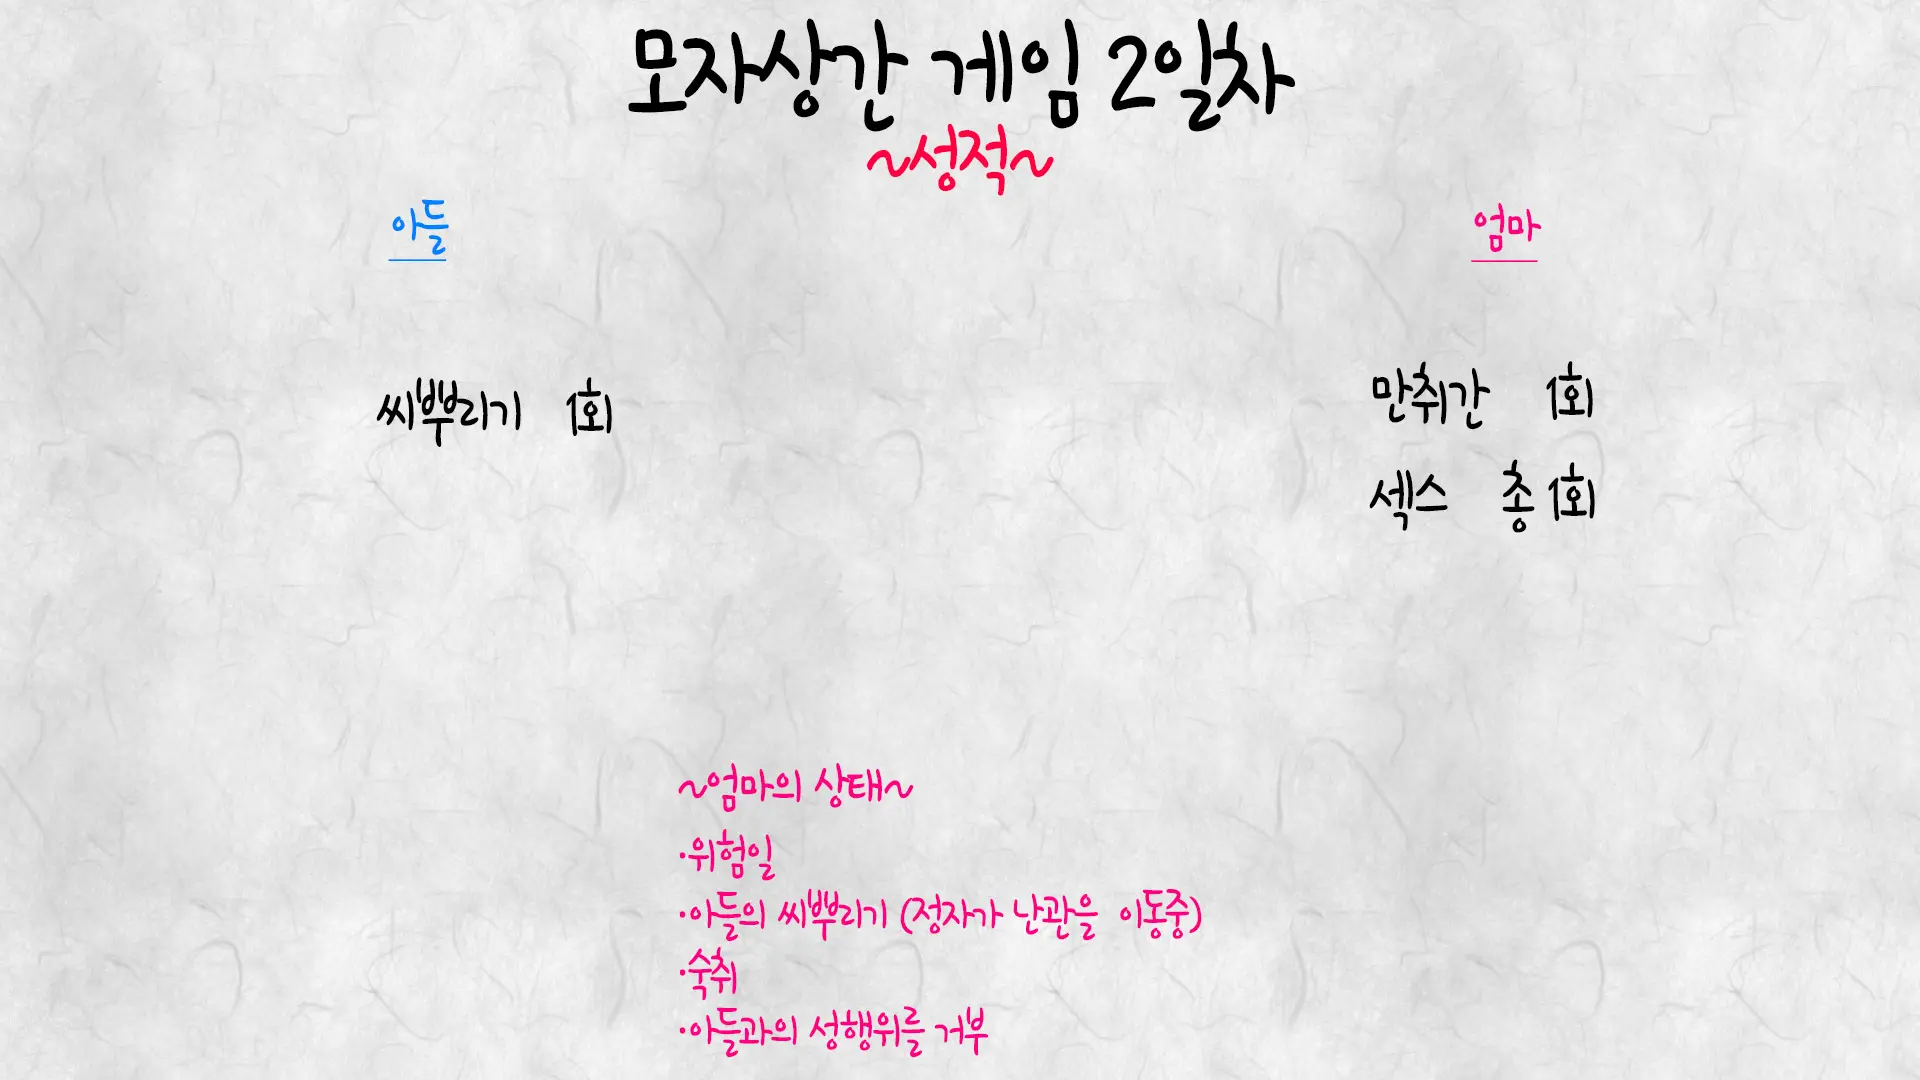 모자상간 게임 2일차
~성적~
아들
엄마
씨뿌리기 1회
만취간 1회
섹스 총 1회
~엄마의 상태~
·위험일
·아들의 씨뿌리기 (정자가 난관을 이동중)
·숙취
·아들과의 성행위를 거부